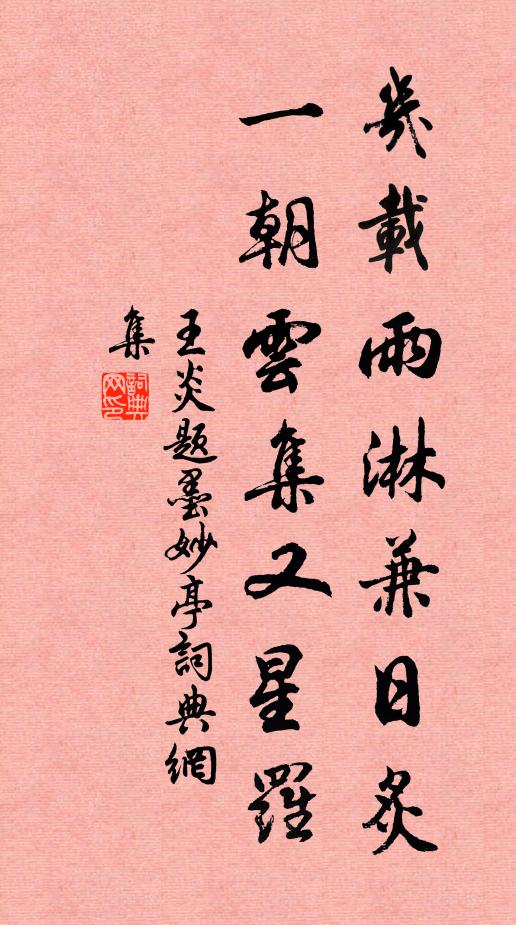 幾載雨淋兼日炙
一朝雲集又星羅
王炎題墨妙亭詞典網
集
詞典
网印